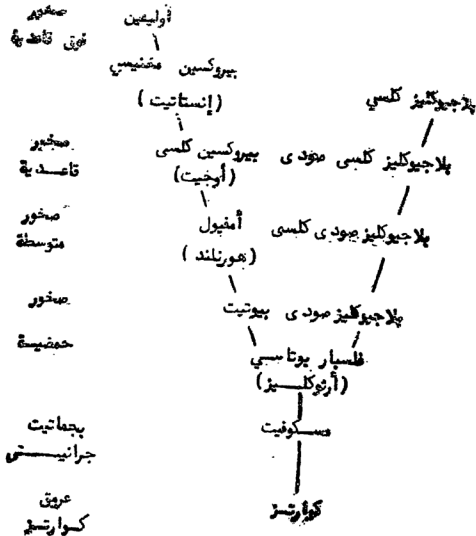 صخور
فوق قاعدية
أوليفين
بيروكسين مغنيسي
(إنستاتيت)
بلاجيوكليز كلسي
صخور
قاعدية
بيروكسين كلسى
(أوجيت)
بلاجيوكليز كلسى صودى
صخور
متوسطة
أمفيول
(هورنلند)
بلاجيوكليز صودى كلسى
صخور
حمضية
بيوتيت
بلاجيوكليز صودى
فلسبار بوتاسي
(أرثوكليز)
بجماتيت
جرانيتى
مسكوفيت
عروق
كوارتز
كوارتز